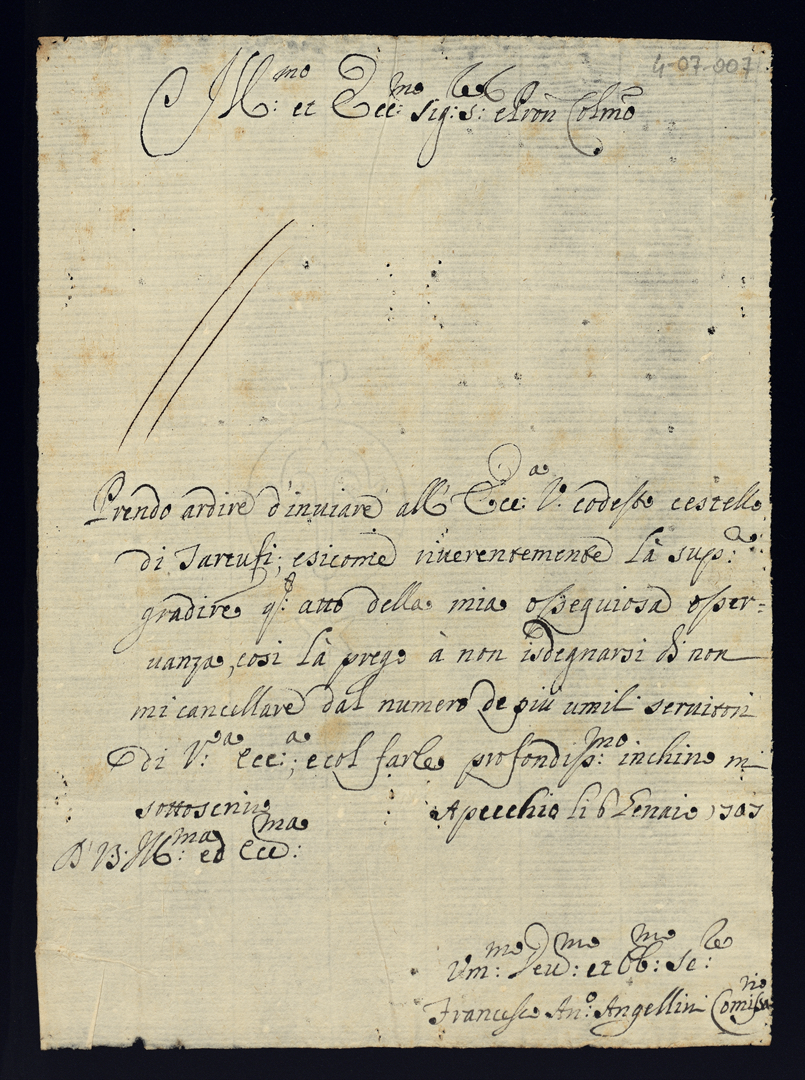 4-07-007
Ill:mo et Ecc:mo Sig:re S: e Pron Colmo
Prendo ardire d'inuiare all' Ecc:a V: codeste cestello
di Tartufi; e sicome riuerentemente là sup:a
gradire q:o atto della mia osseguiosa osser=
uanza, cosi là prego à non isdegnarsi di non
mi cancellare dal numero de più umil seruitori
di V:a Ecc:a; e col farle profondiss:mo inchino mi
sottoscriuo
Apecchio li 6 Genaio 1707
D' V: Ill:ma ed Ecc:ma
Um:mo Deu:mo et Obb:mo Se:re
Francesco An:o Angellini Comissario